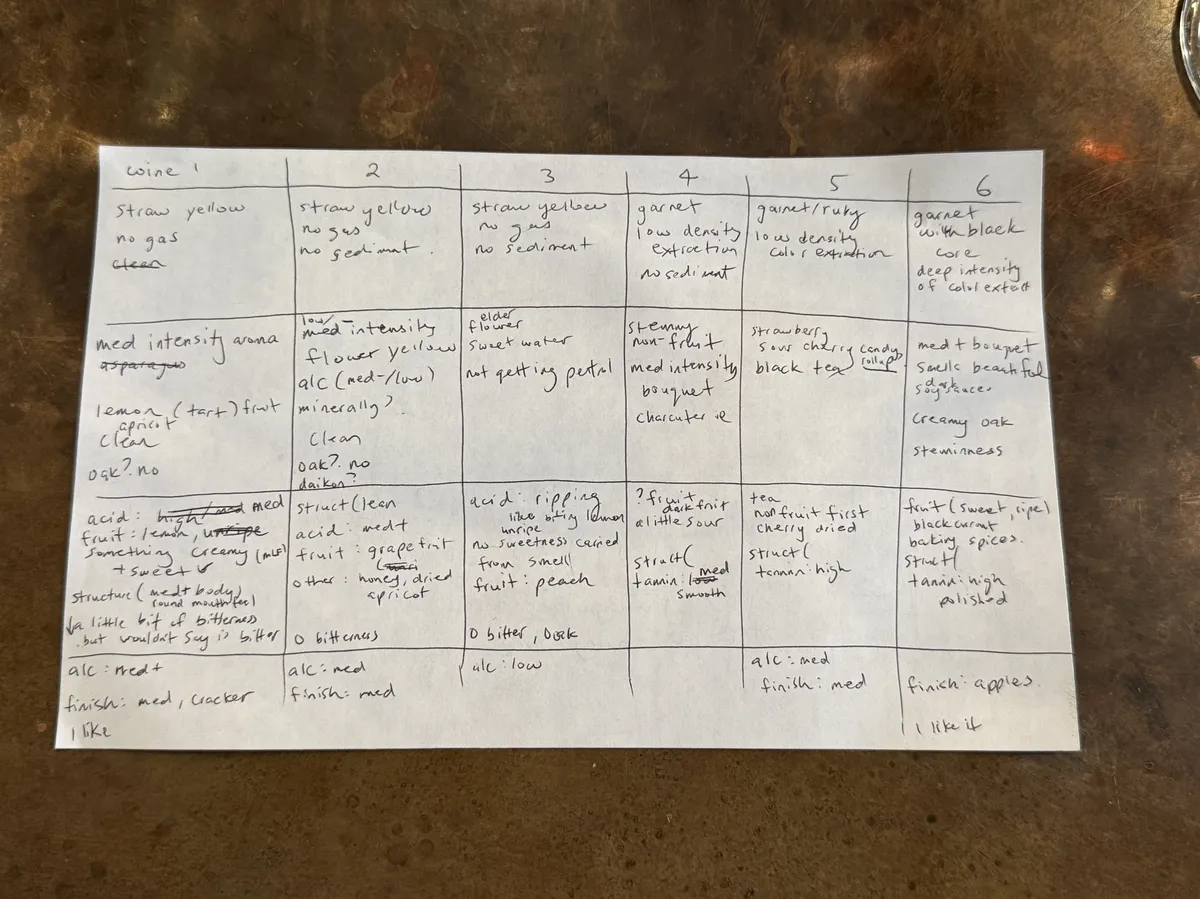 wine 1
straw yellow
no gas
clean
med intensity aroma
asparagus
lemon (tart) fruit
apricot
clean
oak? no
acid: high/med med
fruit: lemon, unripe
something creamy (MLF)
+ sweet
structure (med+ body)
round mouthfeel
a little bit of bitterness
but wouldn't say is bitter
alc: med+
finish: med, cracker
I like
2
straw yellow
no gas
no sediment.
low/med- intensity
flower yellow
alc (med-/low)
minerally?
clean
oak? no
daikon?
struct(lean
acid: med+
fruit: grapefruit
other: honey, dried
apricot
0 bitterness
alc: med
finish: med
3
straw yellow
no gas
no sediment
elder
flower
sweet water
not getting petrol
acid: ripping
like biting lemon
unripe
no sweetness carried
from smell
fruit: peach
0 bitter, 0 oak
alc: low
4
garnet
low density
extraction
no sediment
stemmy
non-fruit
med intensity
bouquet
charcuterie
? fruit
dark fruit
a little sour
struct(
tannin: low med
smooth
5
garnet/ruby
low density
color extraction
strawberry
sour cherry candy
rollups
black tea
tea
non fruit first
cherry dried
struct(
tannin: high
alc: med
finish: med
6
garnet
with black
core
deep intensity
of color extract
med+ bouquet
smells beautiful
dark
soy sauce
creamy oak
stemminess
fruit (sweet, ripe)
black currant
baking spices.
struct(
tannin: high
polished
finish: apples.
I like it